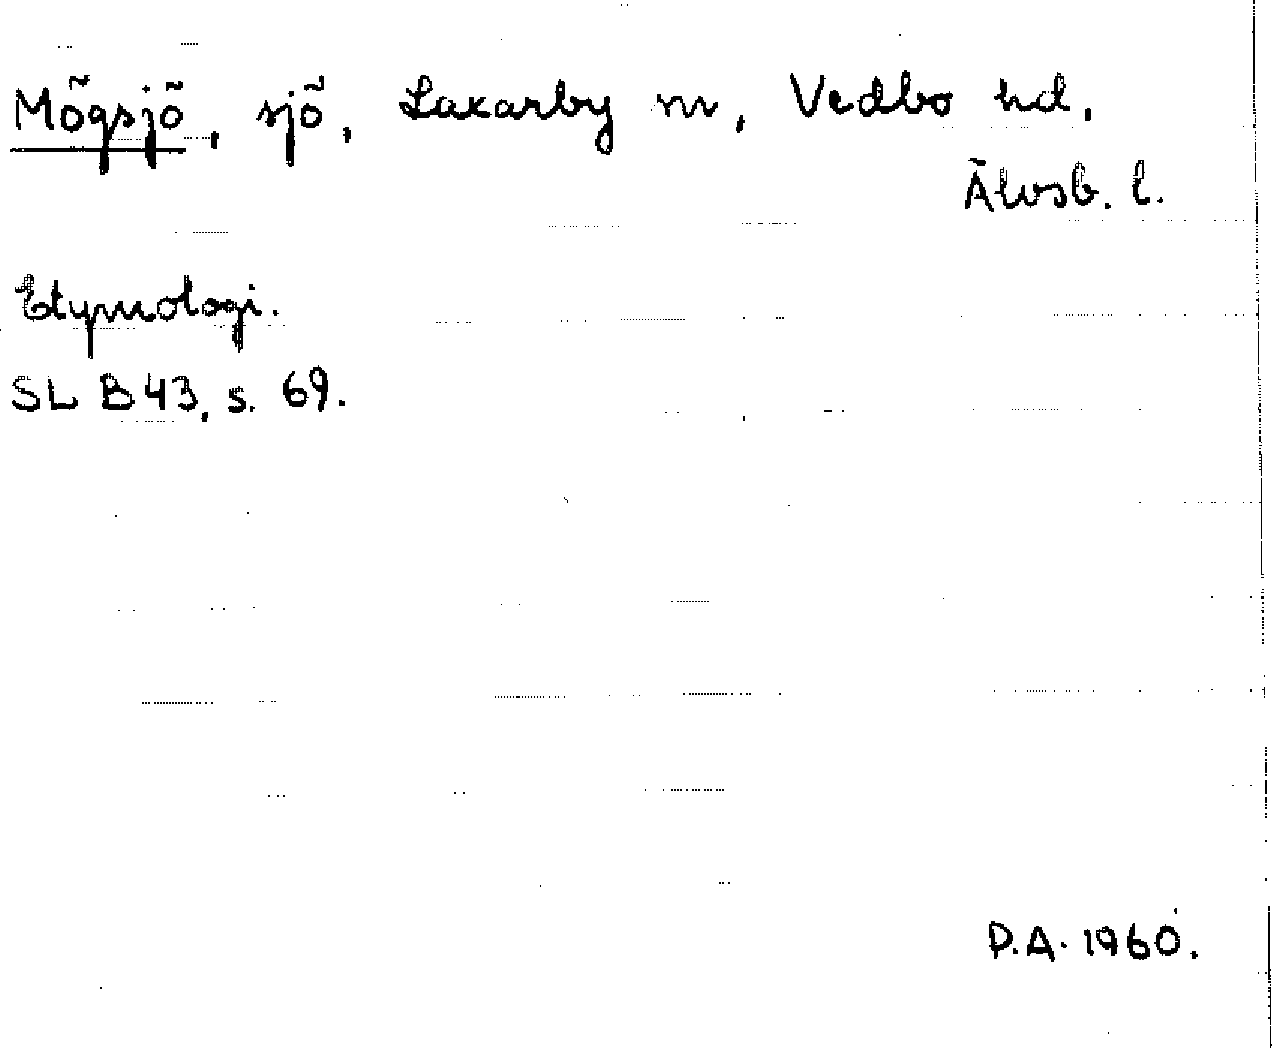 Mögsjö, sjö, Laxarby sn, Vedbo hd,
Älvsb. l.
Etymologi.
SL B43, s. 69.
P.A. 1960.